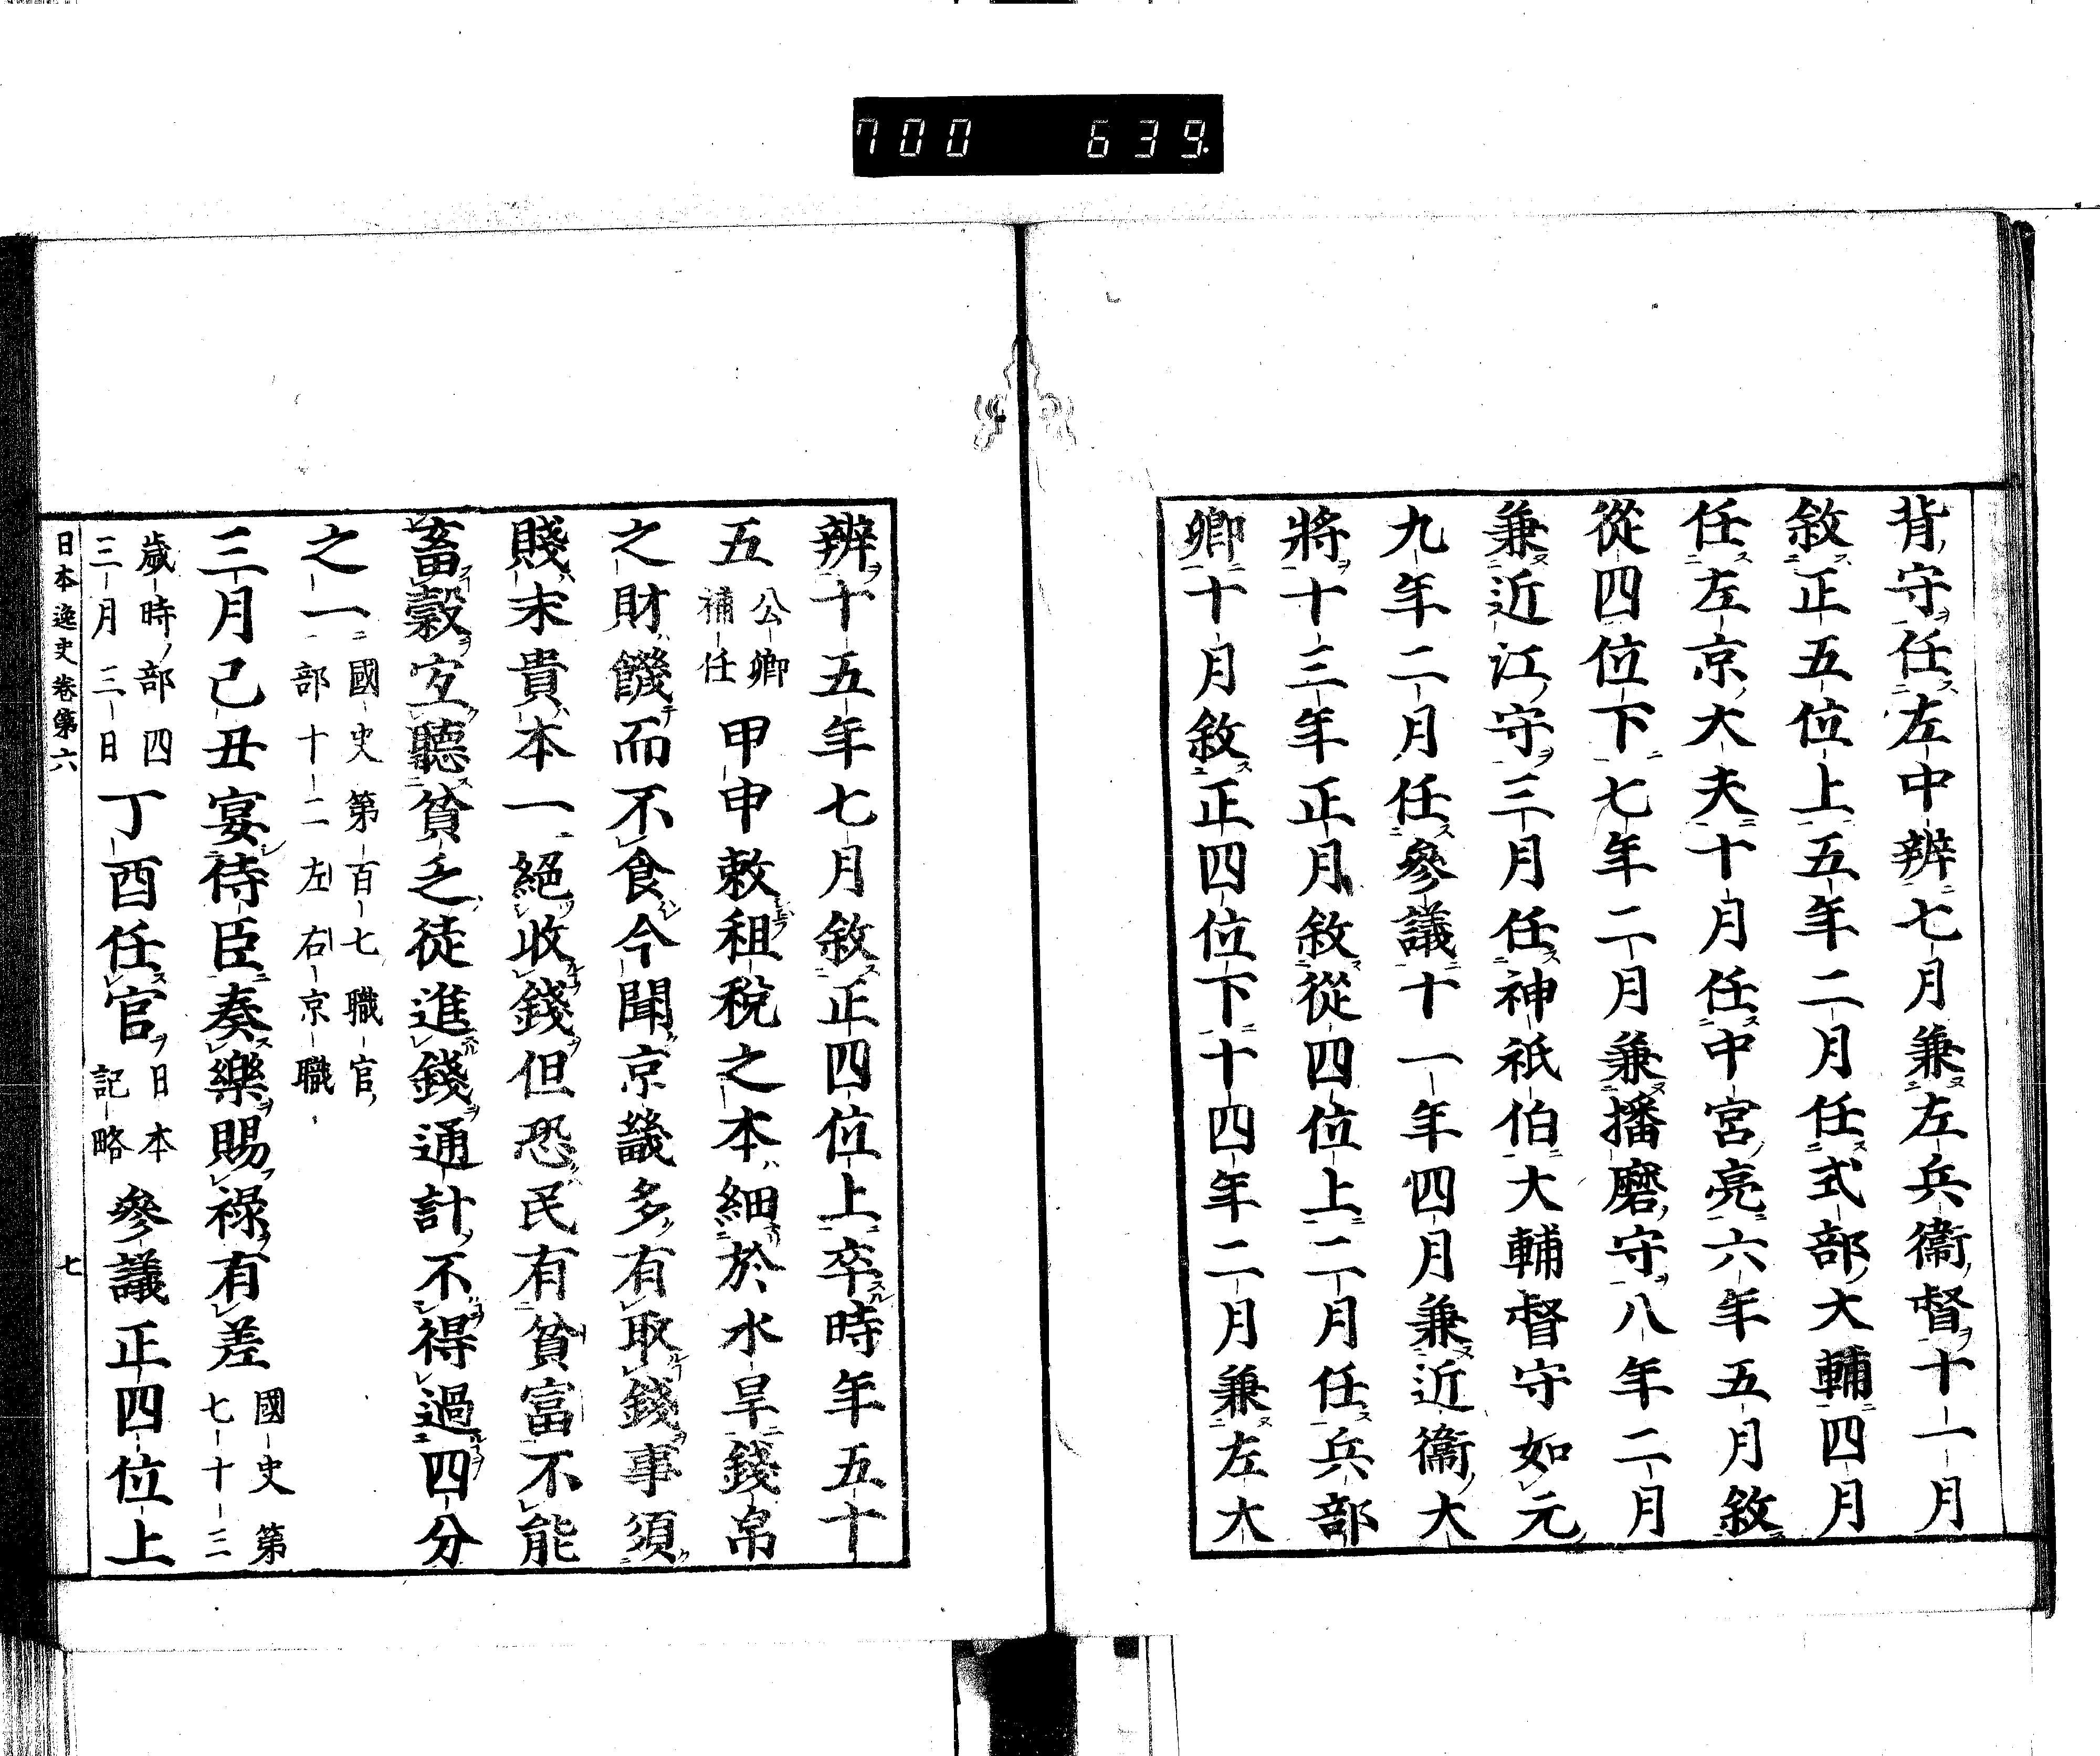 700 639.
背守任左中辨七月兼左兵衞督十一月
敘正五位上五年二月任式部大輔四月
任左京大夫十月任中宮亮六年五月敘
從四位下七年二月兼播磨守八年二月
兼近江守三月任神祇伯大輔督守如元
九年二月任參議十一年四月兼近衞大
將十三年正月敘從四位上二月任兵部
卿十月敘正四位下十四年二月兼左大
辨十五年七月敘正四位上卒時年五十
五公卿補任甲申敕租稅之本細於水旱錢帛
之財饑而不食今聞京畿多有取錢事須
賤末貴本一絕收錢但恐民有貧富不能
畜穀宜聽貧乏徒進錢通計不得過四分
之一國史第百七職官部十二左右京職
三月己丑宴侍臣奏樂賜祿有差國史第七十三
歲時部四三月三日丁酉任官日本記略參議正四位上
日本逸史卷第六 七